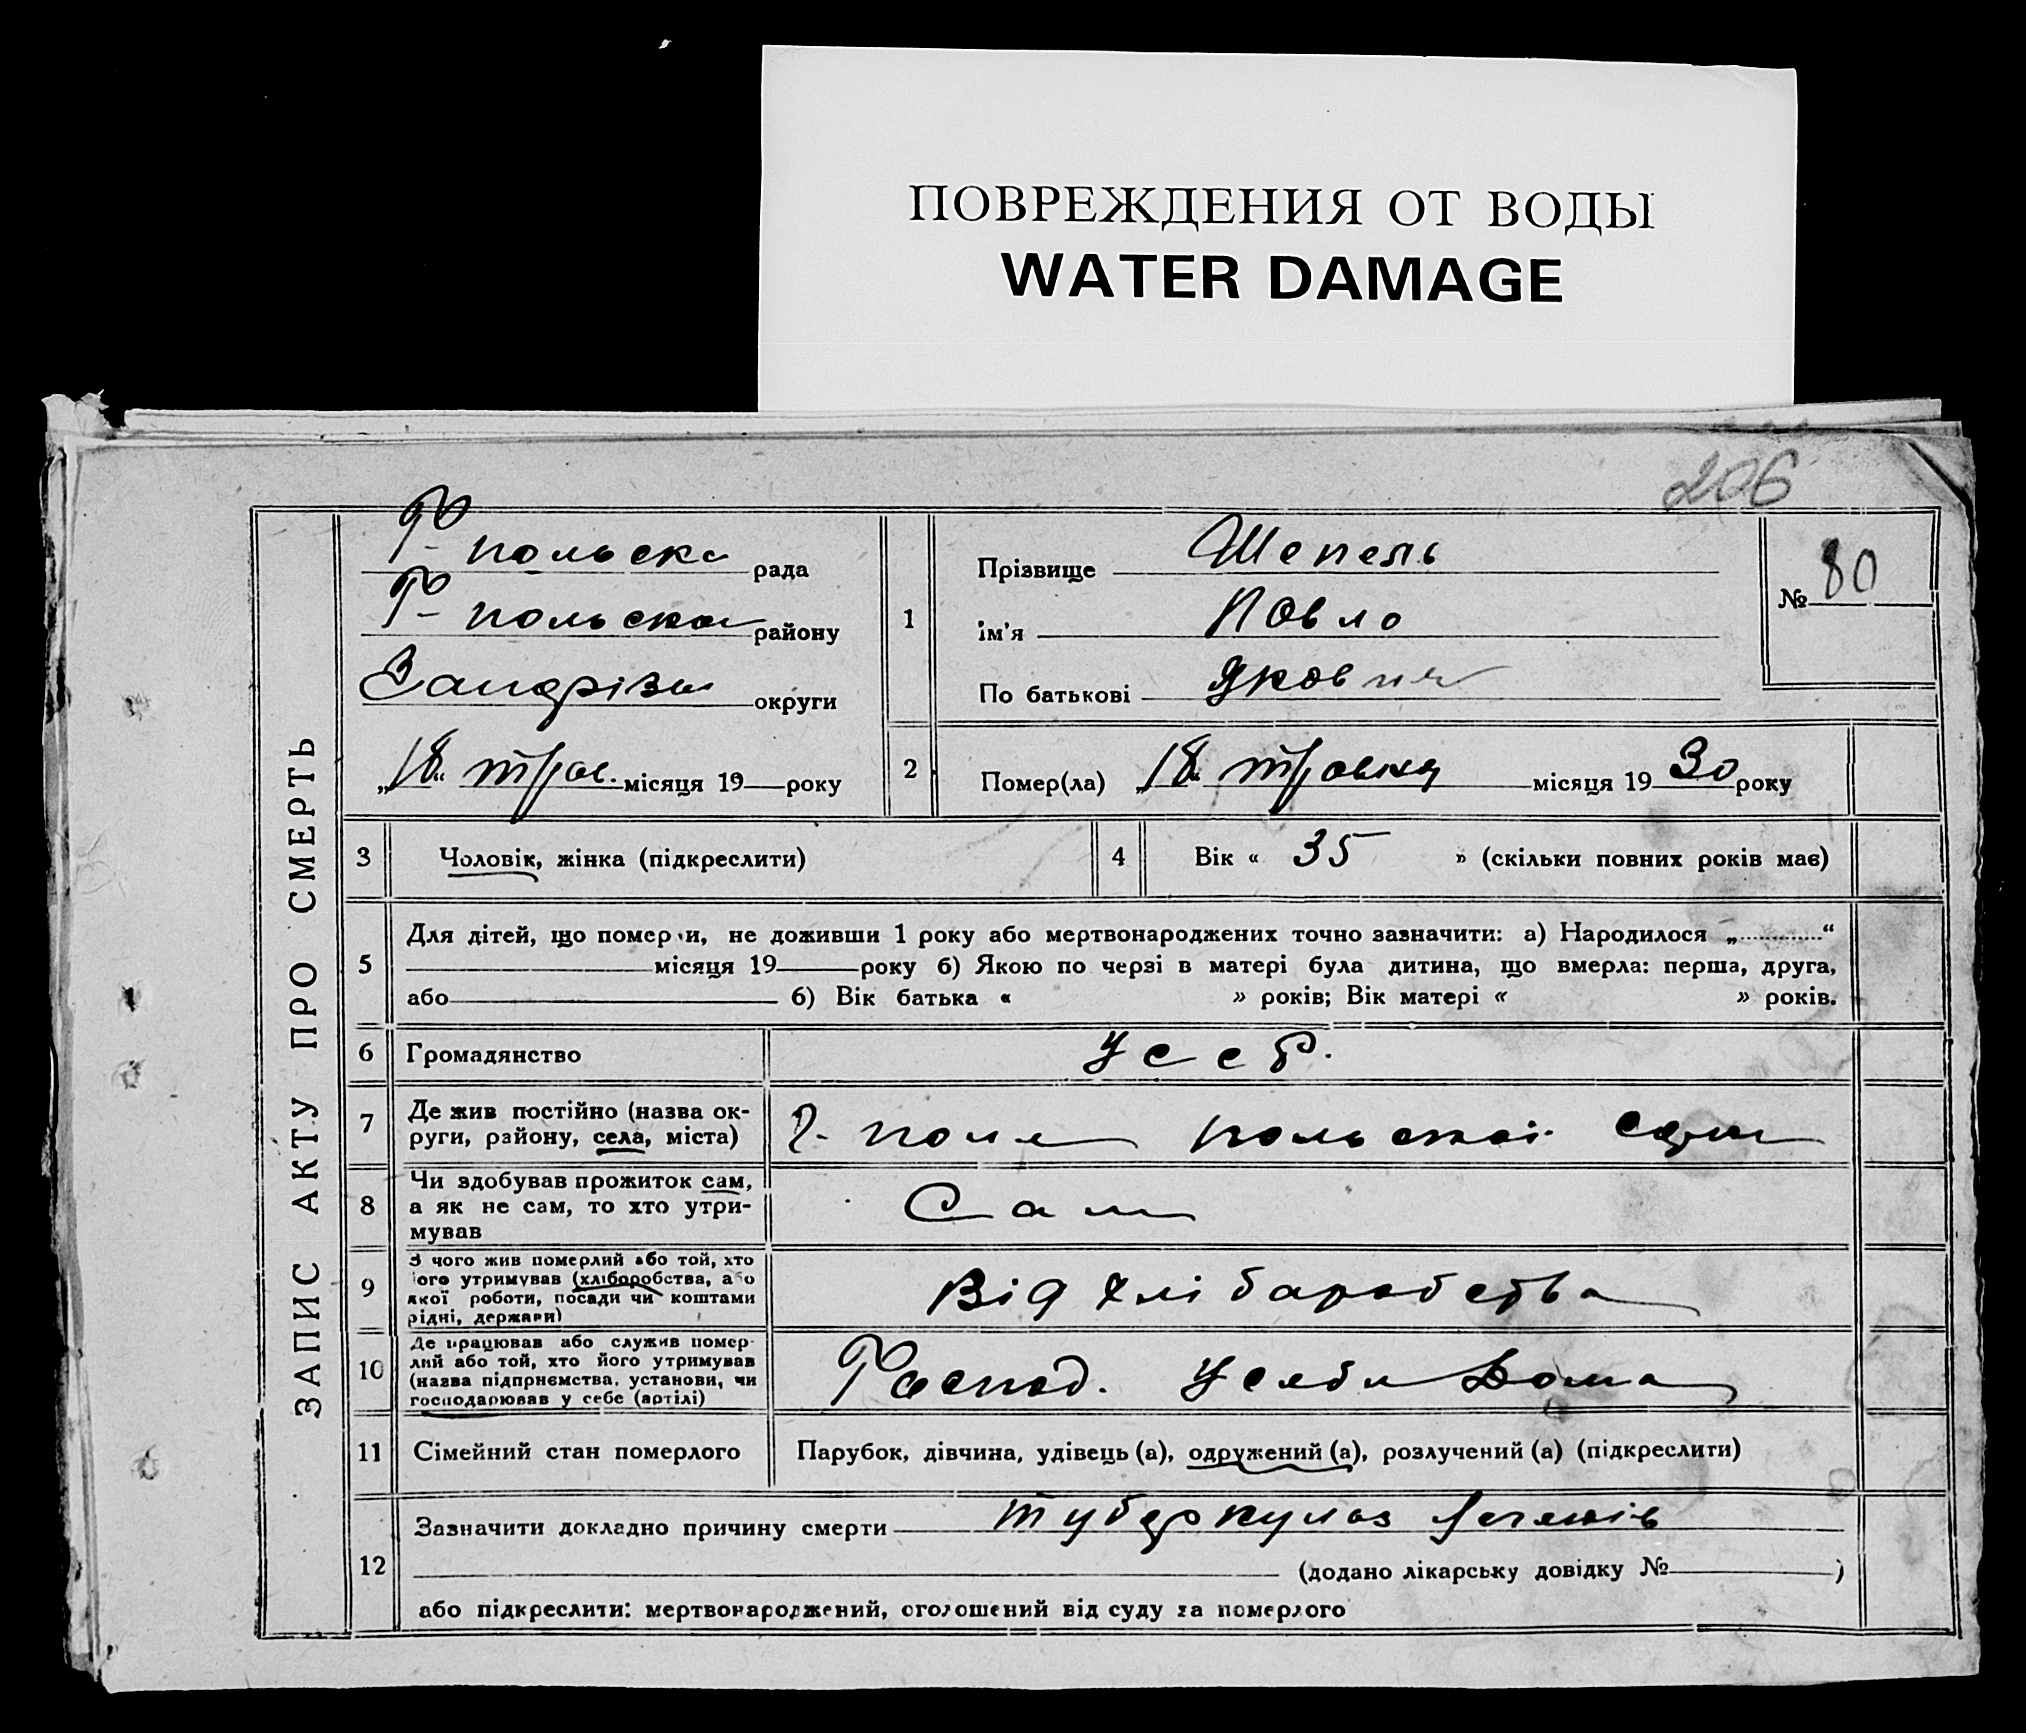 ПОВРЕЖДЕНИЯ ОТ ВОДЫ
WATER DAMAGE
206
ЗАПИС АКТУ ПРО СМЕРТЬ
Г-польска рада
Г-польска району
Запоріз. округи
„18“ трав. місяця 19 року
1 Прізвище Шепель
ім'я Павло
По батькові Якович
№ 80
2 Помер(ла) „18“ травня місяця 19 30 року
3 Чоловік, жінка (підкреслити)
4 Вік « 35 » (скільки повних років має)
5 Для дітей, що померли, не доживши 1 року або мертвонароджених точно зазначити: а) Народилося „ “
місяця 19 року б) Якою по черзі в матері була дитина, що вмерла: перша, друга,
або б) Вік батька « » років; Вік матері « » років.
6 Громадянство Усср.
7 Де жив постійно (назва ок-
руги, району, села, міста) Г-поля польської
8 Чи здобував прожиток сам,
а як не сам, то хто утри-
мував
Сам
9 З чого жив померлий або той, хто
його утримував (хліборобства, або
якої роботи, посади чи коштами
рідні, держави)
Від хлібаробства
10 Де працював або служив помер-
лий або той, хто його утримував
(назва підприємства, установи, чи
господарював у себе (артілі)
Господ. Усебя Дома
11 Сімейний стан померлого Парубок, дівчина, удівець (а), одружений (а), розлучений (а) (підкреслити)
12 Зазначити докладно причину смерти туберкульоз легенів
(додано лікарську довідку № )
або підкреслити: мертвонароджений, оголошений від суду за померлого